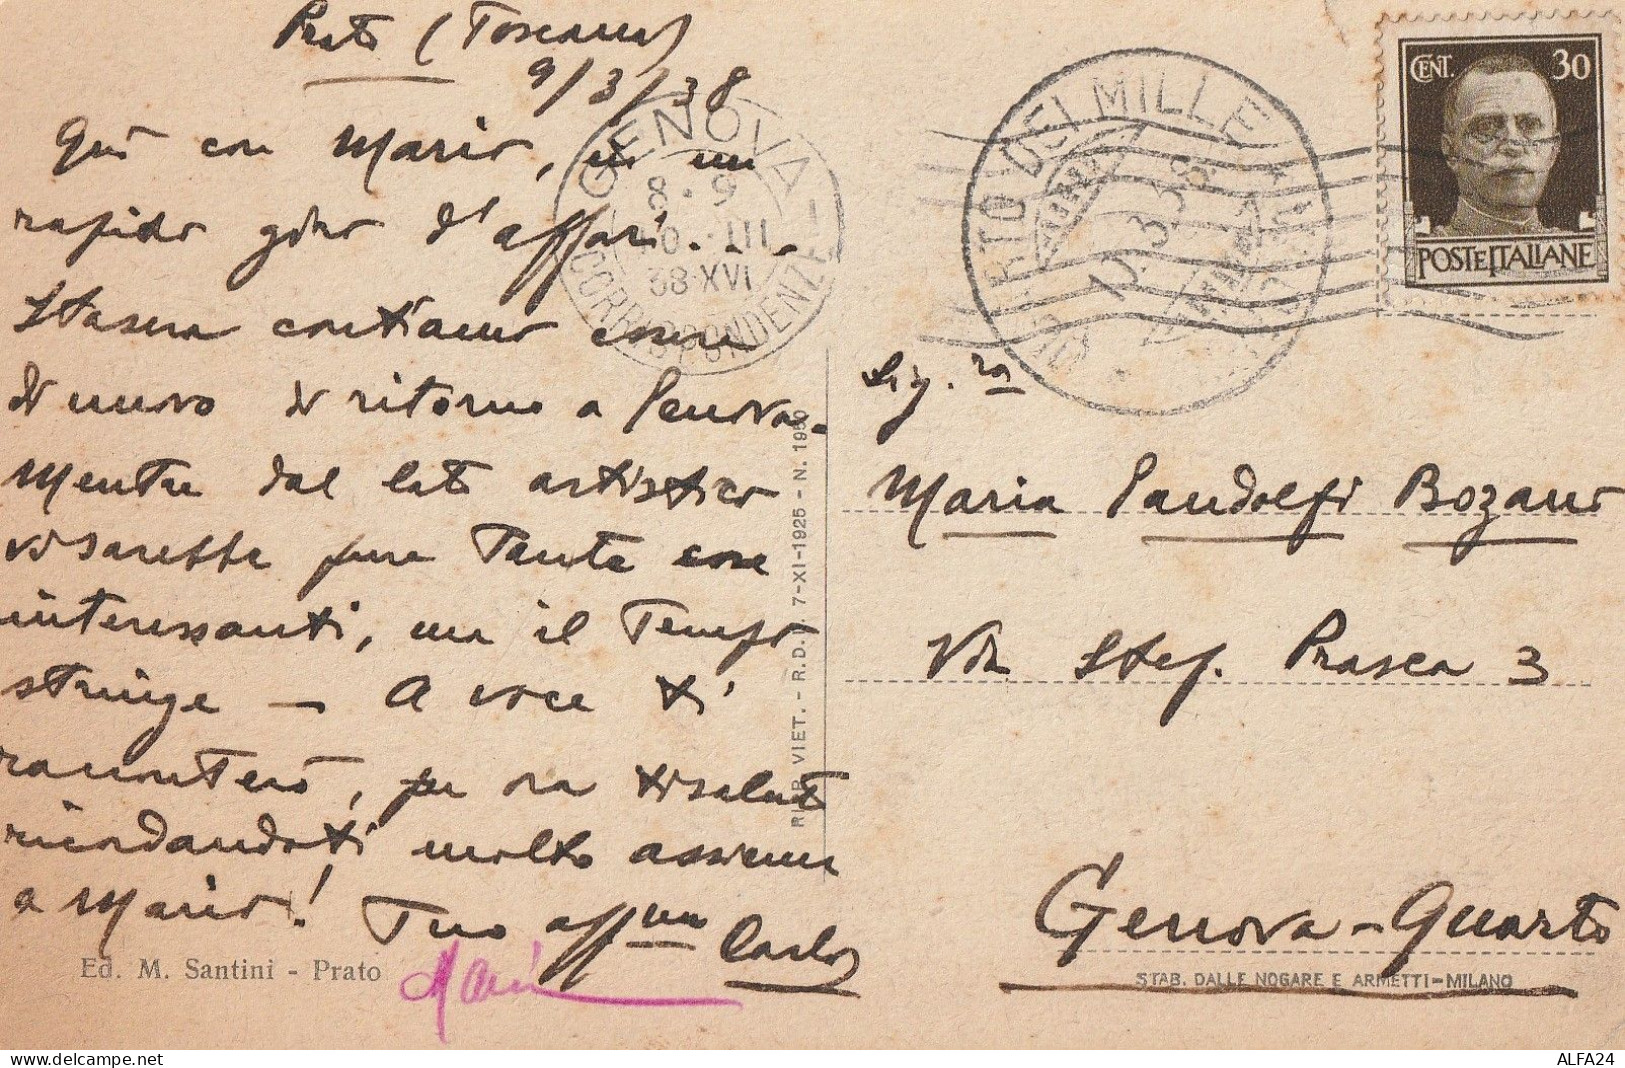 Prato (Toscana)
9/3/38
Qui con Mario, in un
rapido giro d'affari...
Stasera contiamo essere
di nuovo di ritorno a Genova.
Mentre dal lato artistico
vi sarebbe pure Tante cose
interessanti, ma il Tempo
stringe — A voce ti
racconterò, per ora ti saluto
ricordandoti molto assieme
a Mario! Tuo aff.mo Carlo
Mario
Ed. M. Santini - Prato
RIP. VIET. - R.D. 7-XI-1925 - N. 1950
GENOVA
8-9
10.III
38-XVI
CORRISPONDENZE
QUARTO DEI MILLE
10.3.38
CENT. 30
POSTE ITALIANE
Sig.ra
Maria Pandolfi Bozano
Via Stef. Prasca 3
Genova-Quarto
STAB. DALLE NOGARE E ARMETTI-MILANO
ALFA24